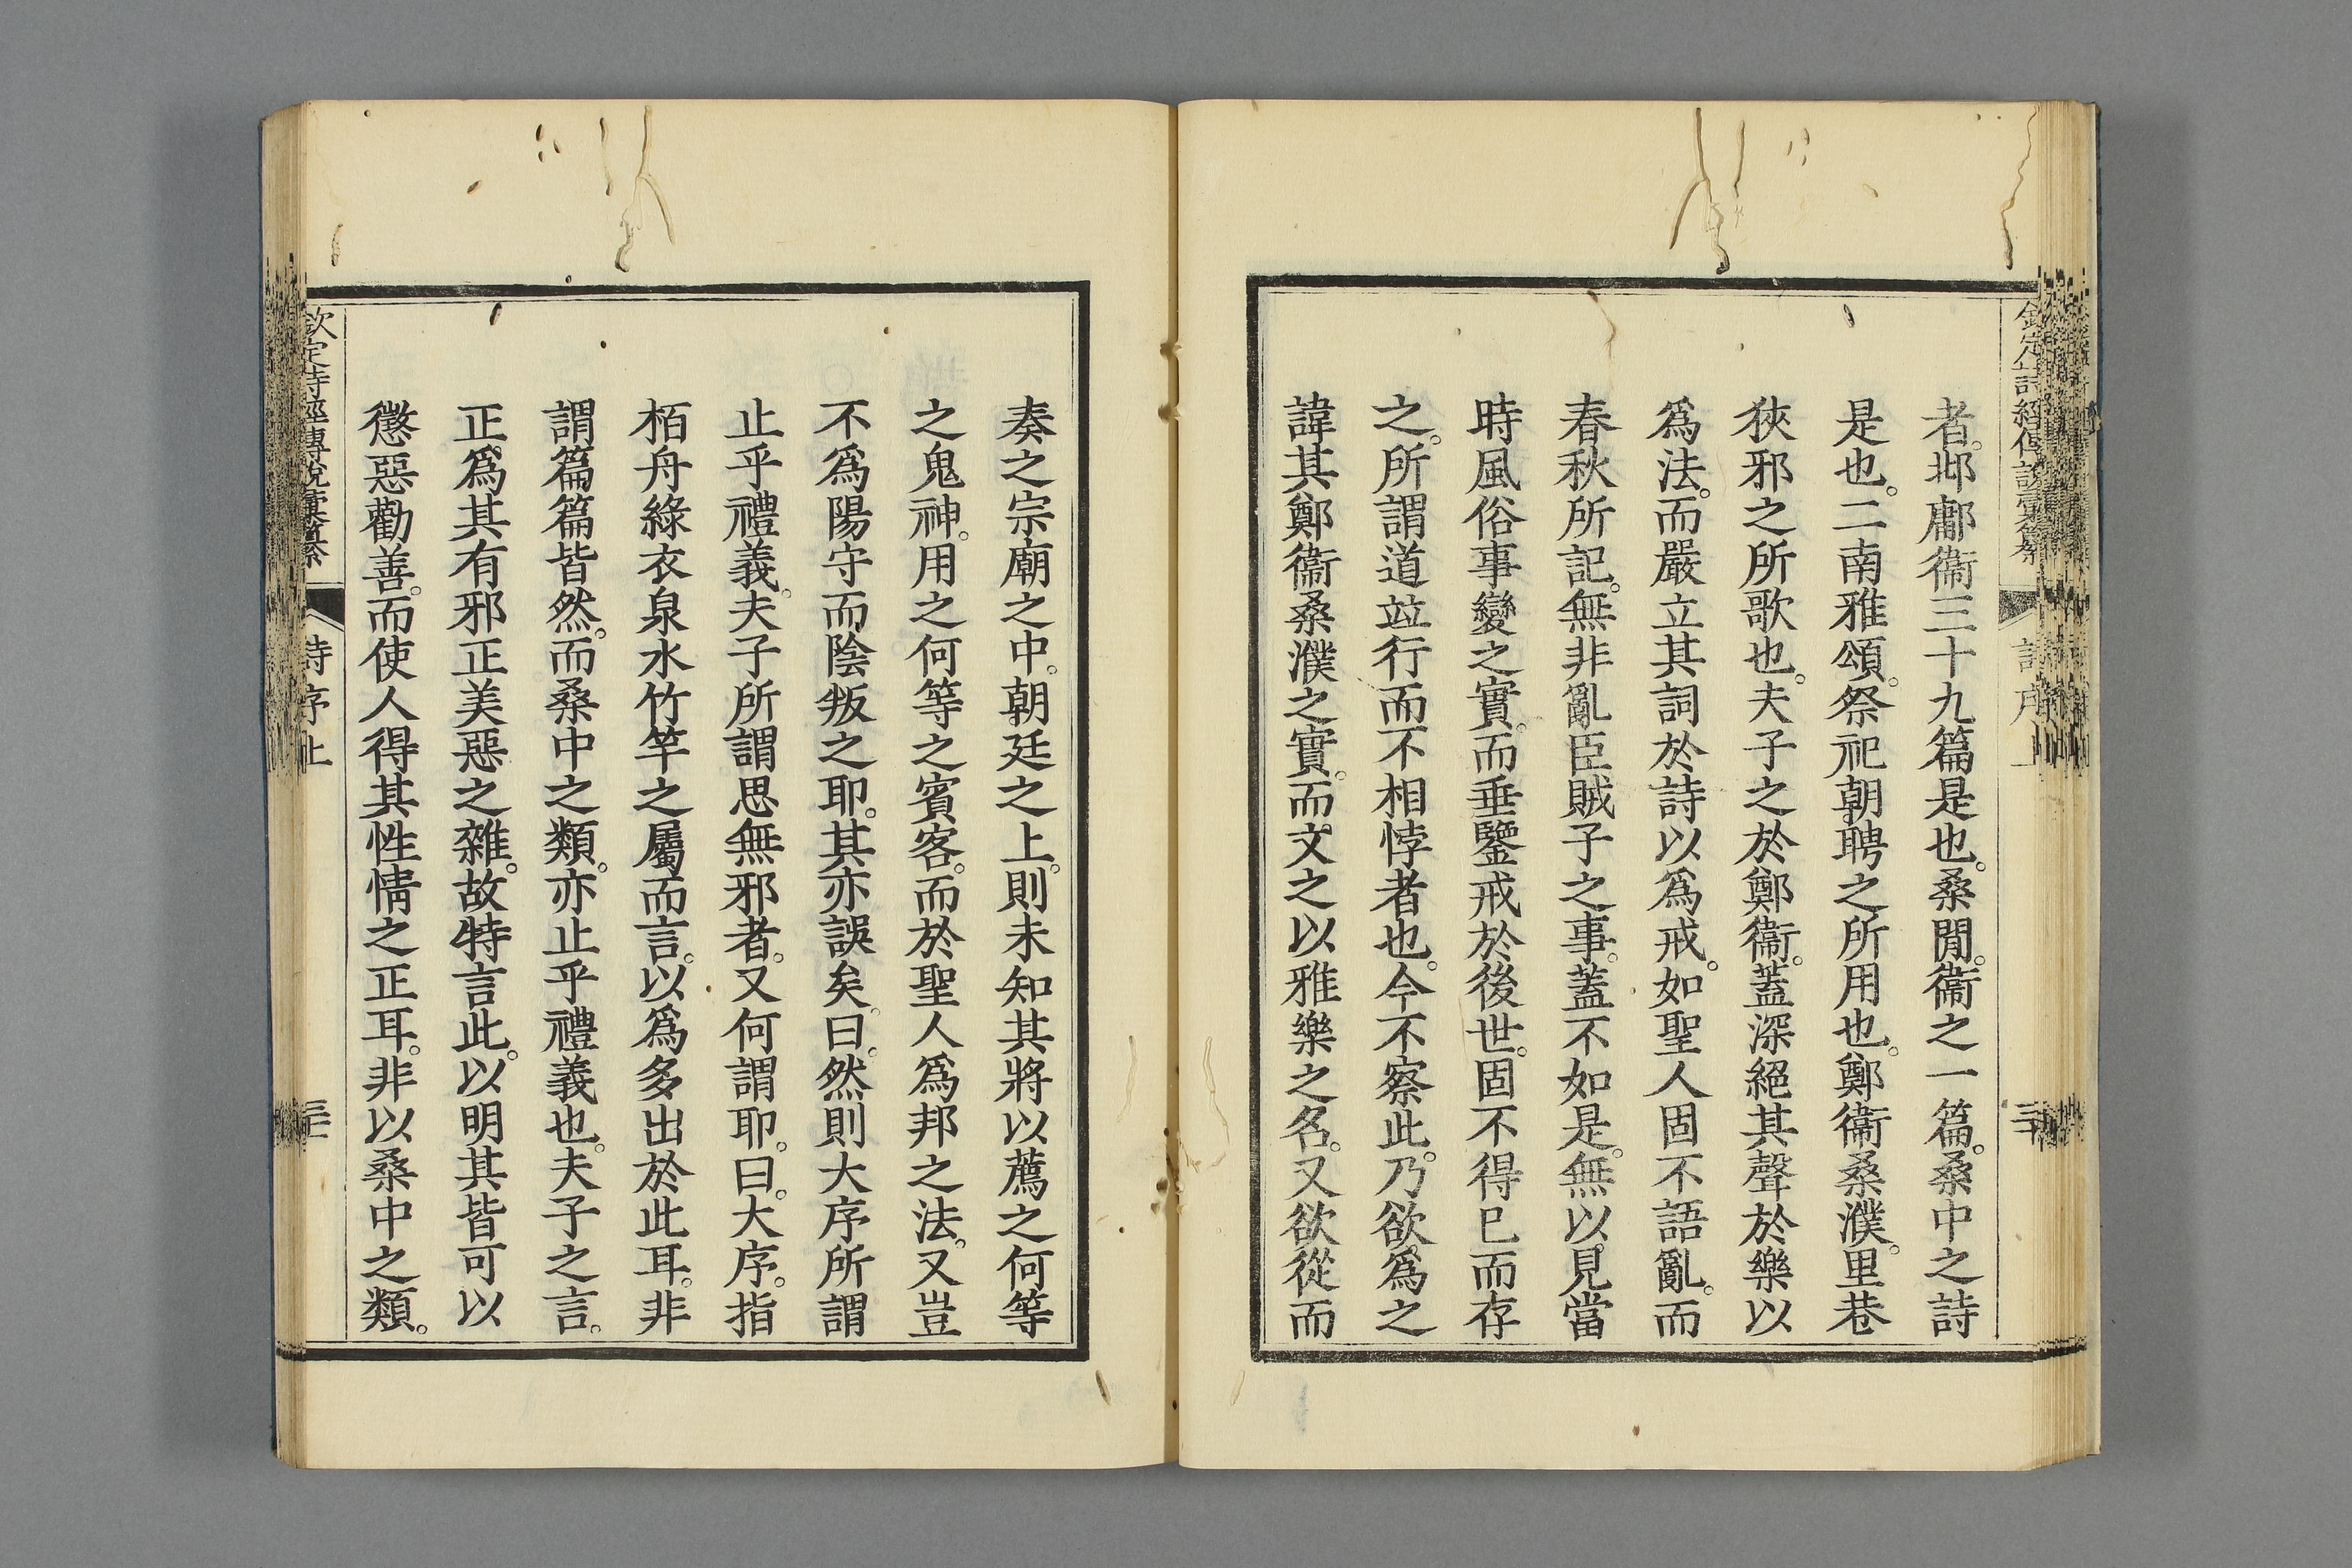 者。邶鄘衞三十九篇是也。桑閒。衞之一篇。桑中之詩
是也。二南雅頌。祭祀朝聘之所用也。鄭衞桑濮。里巷
狹邪之所歌也。夫子之於鄭衞。蓋深絕其聲於樂以
爲法。而嚴立其詞於詩以爲戒。如聖人固不語亂。而
春秋所記。無非亂臣賊子之事。蓋不如是。無以見當
時風俗事變之實。而垂鑒戒於後世。固不得已而存
之。所謂道竝行而不相悖者也。今不察此。乃欲爲之
諱其鄭衞桑濮之實。而文之以雅樂之名。又欲從而
奏之宗廟之中。朝廷之上。則未知其將以薦之何等
之鬼神。用之何等之賓客。而於聖人爲邦之法。又豈
不爲陽守而陰叛之耶。其亦誤矣。曰。然則大序所謂
止乎禮義。夫子所謂思無邪者。又何謂耶。曰。大序。指
栢舟綠衣泉水竹竿之屬而言。以爲多出於此耳。非
謂篇篇皆然。而桑中之類。亦止乎禮義也。夫子之言。
正爲其有邪正美惡之雜。故特言此。以明其皆可以
懲惡勸善。而使人得其性情之正耳。非以桑中之類。
欽定詩經傳說彙纂
詩序上